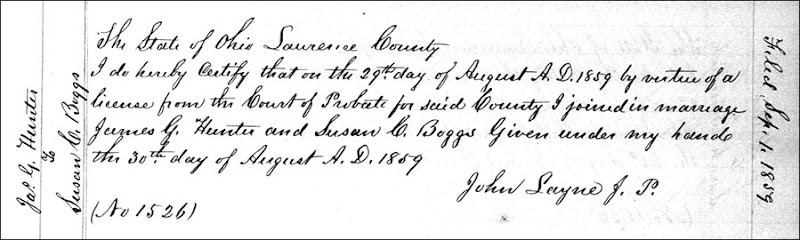 Jas. G. Hunter
to
Susan C. Boggs
The State of Ohio Lawrence County
I do hereby Certify that on the 29th day of August A.D. 1859 by virtue of a
license from the Court of Probate for said County I joined in marriage
James G. Hunter and Susan C. Boggs Given under my hand
the 30th day of August A.D. 1859
John Layne J. P.
(No 1526)
Filed Sep. 1. 1859